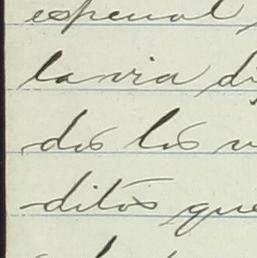 especial
la via di
dos los v
ditos que